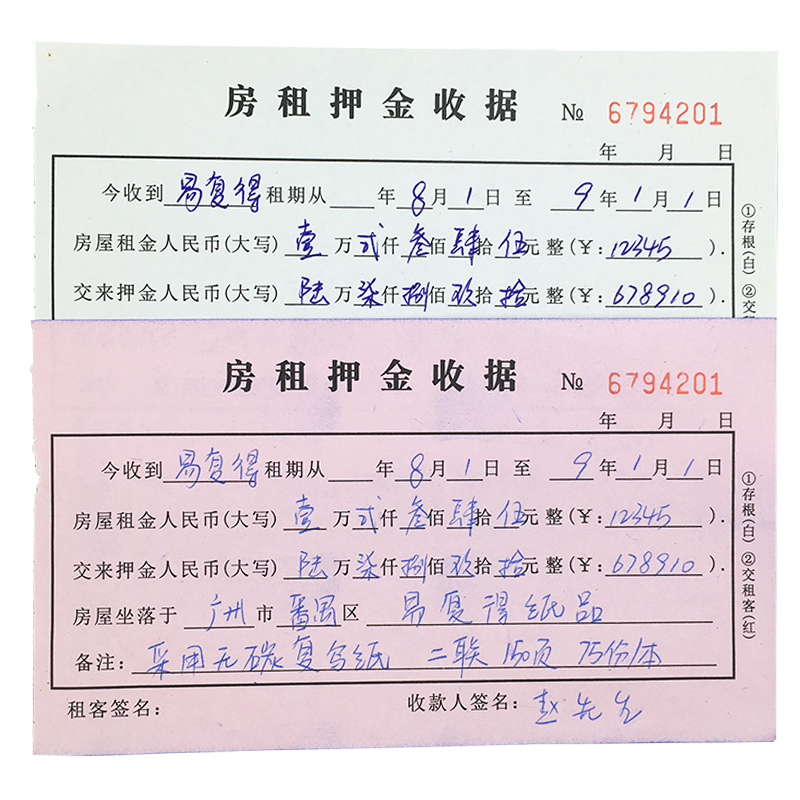 房租押金收据 № 6794201
年 月 日
今收到 易复得 租期从 年 8 月 1 日 至 9 年 1 月 1 日
房屋租金人民币(大写) 壹 万 弍 仟 叁 佰 肆 拾 伍 元 整 (¥: 12345 ).
交来押金人民币(大写) 陆 万 柒 仟 捌 佰 玖 拾 拾 元 整 (¥: 678910 ).
①存根(白) ②交租
房租押金收据 № 6794201
年 月 日
今收到 易复得 租期从 年 8 月 1 日 至 9 年 1 月 1 日
房屋租金人民币(大写) 壹 万 弍 仟 叁 佰 肆 拾 伍 元 整 (¥: 12345 ).
交来押金人民币(大写) 陆 万 柒 仟 捌 佰 玖 拾 拾 元 整 (¥: 678910 ).
房屋坐落于 广州 市 番禺 区 易复得纸品
备注: 采用无碳复写纸 二联 150页 75份/本
①存根(白) ②交租客(红)
租客签名: 收款人签名: 赵先生